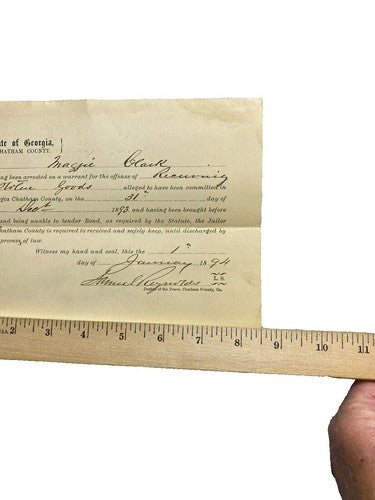 te of Georgia, }
HATHAM COUNTY.
Maggie Clark
ing been arrested on a warrant for the offense of Receiving
Stolen Goods alleged to have been committed in
rgia Chatham County, on the 31st day of
Dec 1893, and having been brought before
and being unable to tender Bond, as required by the Statute, the Jailor
hatham County is required to receive and safely keep, until discharged by
process of law.
Witness my hand and seal, this the 1st
day of January 1894
Samuel Reynolds L. S.
Justice of the Peace, Chatham County, Ga.
2 3 4 5 6 7 8 9 10 11